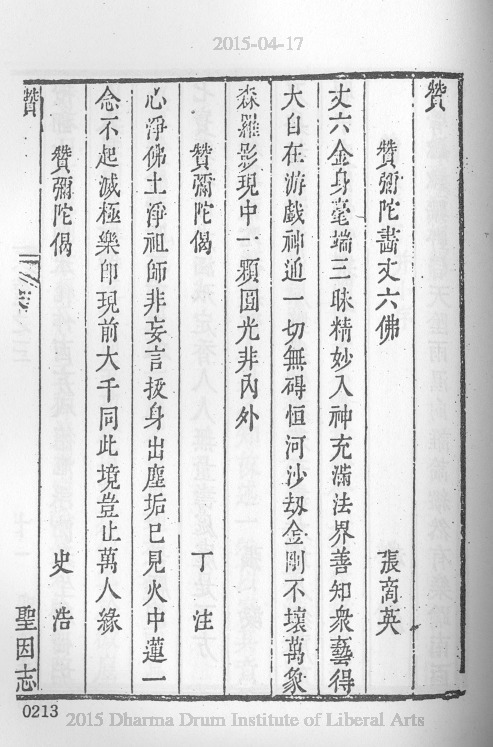 2015-04-17
贊
贊彌陀畫丈六佛 張商英
丈六金身毫端三昧精妙入神充滿法界善知衆藝得
大自在游戲神通一切無碍恒河沙刼金剛不壞萬象
森羅影現中一顆圓光非內外
贊彌陀偈 丁注
心淨佛土淨祖師非妄言拔身出塵垢已見火中蓮一
念不起滅極樂卽現前大千同此境豈止萬人緣
贊彌陀偈 史浩
贊
聖因志
0213
2015 Dharma Drum Institute of Liberal Arts